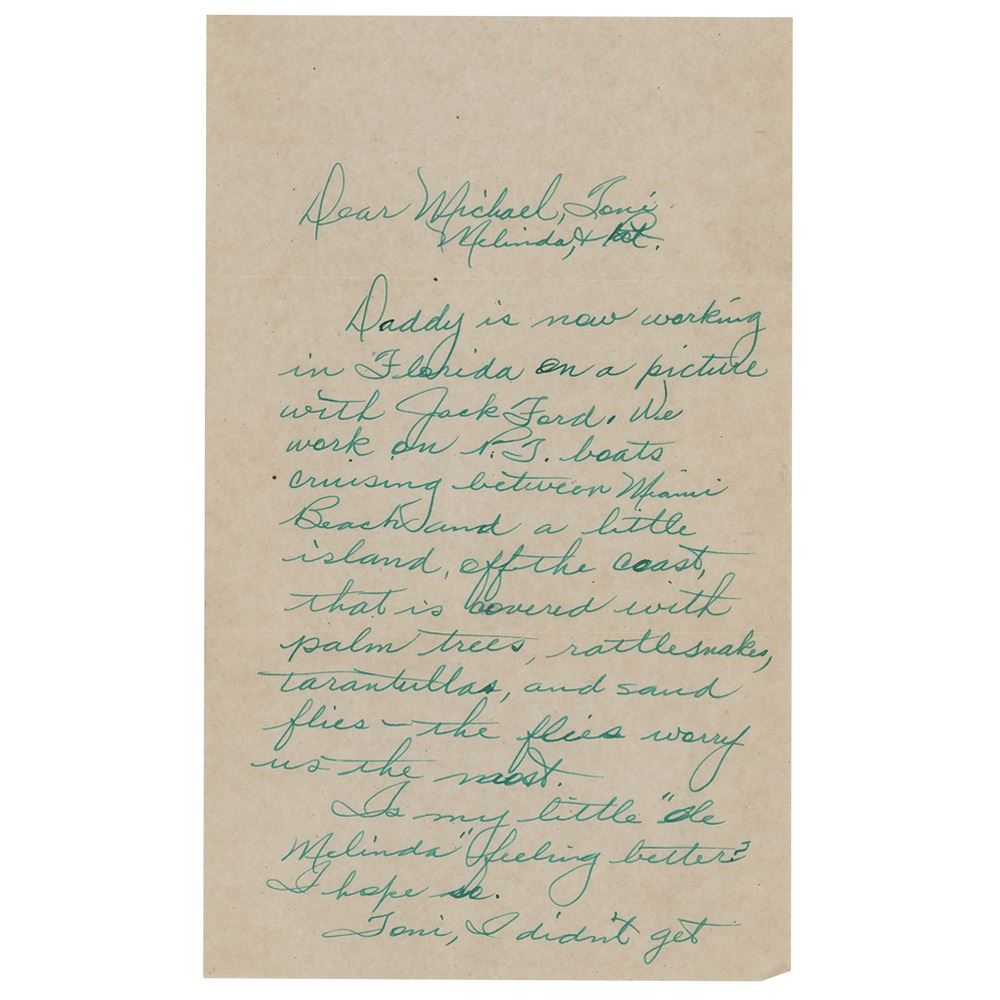 Dear Michael, Toni
Melinda, & Pat.
Daddy is now working
in Florida on a picture
with Jack Ford. We
work on P.T. boats
cruising between Miami
Beach and a little
island, off the coast,
that is covered with
palm trees, rattlesnakes,
tarantullas, and sand
flies – the flies worry
us the most.
Is my little "ole
Melinda" feeling better?
I hope so.
Toni, I didn't get